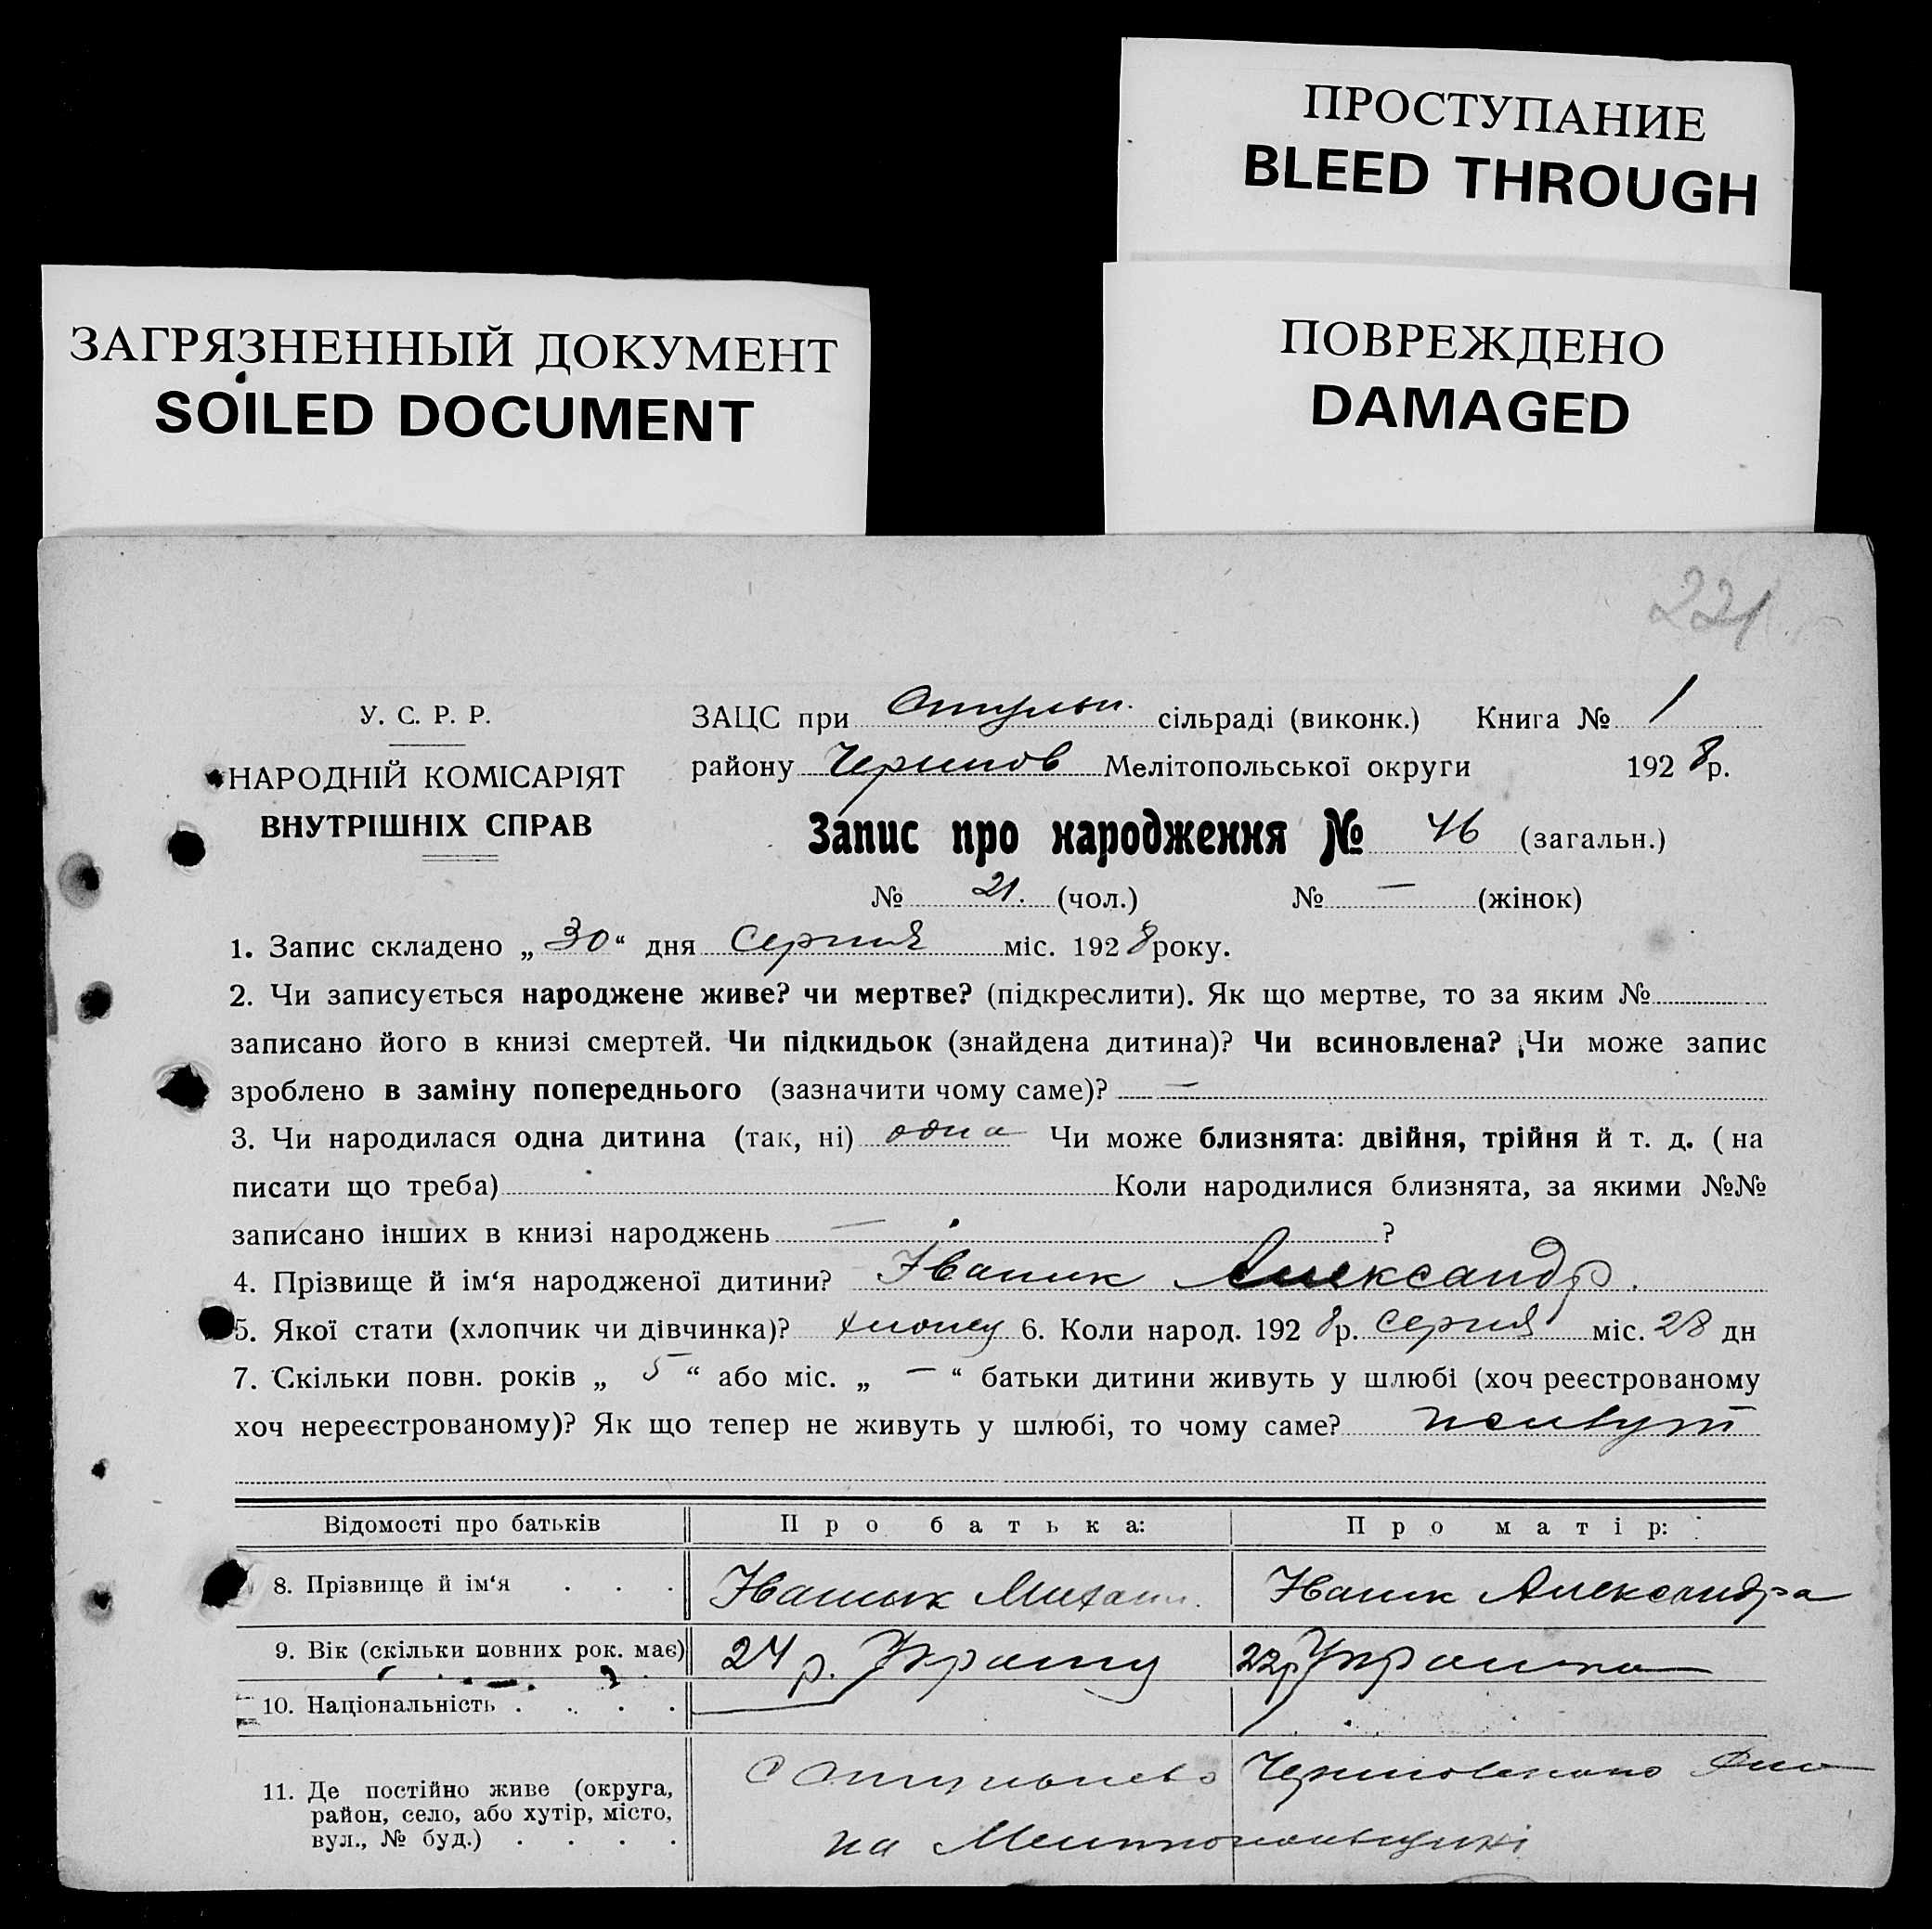 ПРОСТУПАНИЕ
BLEED THROUGH
ЗАГРЯЗНЕННЫЙ ДОКУМЕНТ
SOILED DOCUMENT
ПОВРЕЖДЕНО
DAMAGED
221
У. С. Р. Р.
НАРОДНІЙ КОМІСАРІЯТ
ВНУТРІШНІХ СПРАВ
ЗАЦС при сільраді (виконк.) Книга № 1
району Мелітопольської округи 1928р.
Запис про народження № 46 (загальн.)
№ 21. (чол.) № — (жінок)
1. Запис складено „30“ дня Серпня міс. 1928 року.
2. Чи записується народжене живе? чи мертве? (підкреслити). Як що мертве, то за яким №
записано його в книзі смертей. Чи підкидьок (знайдена дитина)? Чи всиновлена? Чи може запис
зроблено в заміну попереднього (зазначити чому саме)? —
3. Чи народилася одна дитина (так, ні) одна Чи може близнята: двійня, трійня й т. д. (на
писати що треба) Коли народилися близнята, за якими №№
записано інших в книзі народжень — ?
4. Прізвище й ім‘я народженої дитини? Іваник Александр.
5. Якої стати (хлопчик чи дівчинка)? хлопец 6. Коли народ. 1928р. серпня міс. 28 дн
7. Скільки повн. років „ 5 “ або міс. „ — “ батьки дитини живуть у шлюбі (хоч реєстрованому
хоч нереєстрованому)? Як що тепер не живуть у шлюбі, то чому саме? живут
Відомості про батьків Про батька: Про матір:
8. Прізвище й ім‘я . . . Іваник Михаил. Іваник Александра
9. Вік (скільки повних рок. має) 24 р. 22р Украинка
10. Національність . . . .
11. Де постійно живе (округа,
район, село, або хутір, місто,
вул., № буд.) . . . .
на Мелитопольщині